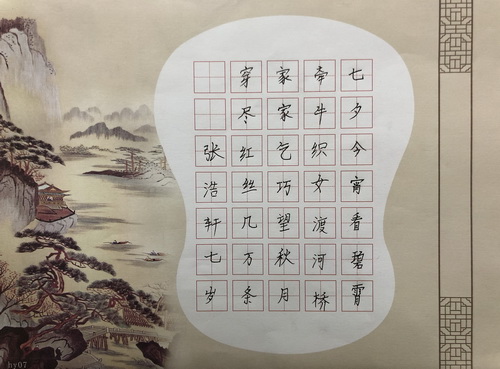 七夕今宵看碧霄
牵牛织女渡河桥
家家乞巧望秋月
穿尽红丝几万条
张浩轩七岁
hy07